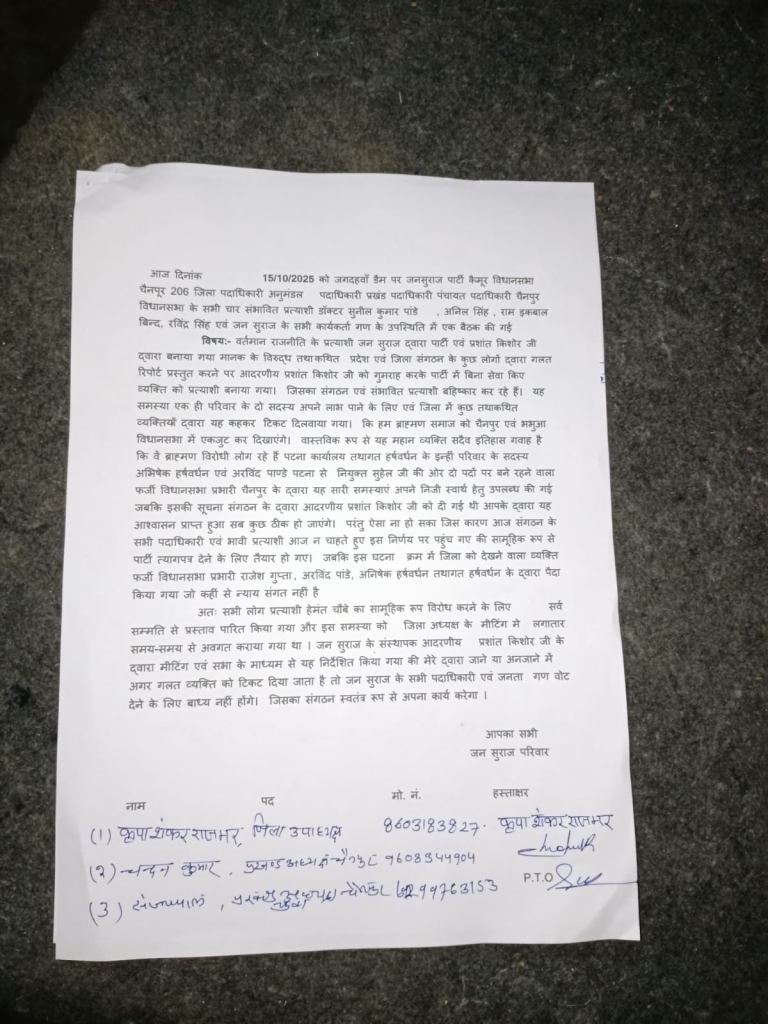 आज दिनांक 15/10/2025 को जगदहवाँ डैम पर जनसुराज पार्टी कैमूर विधानसभा
चैनपूर 206 जिला पदाधिकारी अनुमंडल पदाधिकारी प्रखंड पदाधिकारी पंचायत पदाधिकारी चैनपुर
विधानसभा के सभी चार संभावित प्रत्याशी डॉक्टर सुनील कुमार पांडे , अनिल सिंह , राम इकबाल
बिन्द, रविंद्र सिंह एवं जन सुराज के सभी कार्यकर्ता गण के उपस्थिति में एक बैठक की गई
विषयः- वर्तमान राजनीति के प्रत्याशी जन सुराज द्वारा पार्टी एवं प्रशांत किशोर जी
द्वारा बनाया गया मानक के विरुद्ध तथाकथित प्रदेश एवं जिला संगठन के कुछ लोगों द्वारा गलत
रिपोर्ट प्रस्तुत करने पर आदरणीय प्रशांत किशोर जी को गुमराह करके पार्टी में बिना सेवा किए
व्यक्ति को प्रत्याशी बनाया गया। जिसका संगठन एवं संभावित प्रत्याशी बहिष्कार कर रहे हैं। यह
समस्या एक ही परिवार के दो सदस्य अपने लाभ पाने के लिए एवं जिला में कुछ तथाकथित
व्यक्तियों द्वारा यह कहकर टिकट दिलवाया गया। कि हम ब्राह्मण समाज को चैनपुर एवं भभुआ
विधानसभा में एकजुट कर दिखाएंगे। वास्तविक रूप से यह महान व्यक्ति सदैव इतिहास गवाह है
कि वे ब्राह्मण विरोधी लोग रहे हैं पटना कार्यालय तथागत हर्षवर्धन के इन्हीं परिवार के सदस्य
अभिषेक हर्षवर्धन एवं अरविंद पाण्डे पटना से नियुक्त सुहेल जी की ओर दो पदों पर बने रहने वाला
फर्जी विधानसभा प्रभारी चैनपुर के द्वारा यह सारी समस्याएं अपने निजी स्वार्थ हेतु उपलब्ध की गई
जबकि इसकी सूचना संगठन के द्वारा आदरणीय प्रशांत किशोर जी को दी गई थी आपके द्वारा यह
आश्वासन प्राप्त हुआ सब कुछ ठीक हो जाएंगे। परंतु ऐसा ना हो सका जिस कारण आज संगठन के
सभी पदाधिकारी एवं भावी प्रत्याशी आज न चाहते हुए इस निर्णय पर पहुंच गए की सामूहिक रूप से
पार्टी त्यागपत्र देने के लिए तैयार हो गए। जबकि इस घटना क्रम में जिला को देखने वाला व्यक्ति
फर्जी विधानसभा प्रभारी राजेश गुप्ता, अरविंद पांडे, अनिषेक हर्षवर्धन तथागत हर्षवर्धन के द्वारा पैदा
किया गया जो कहीं से न्याय संगत नहीं है
अतः सभी लोग प्रत्याशी हेमंत चौबे का सामूहिक रूप विरोध करने के लिए सर्व
सम्मति से प्रस्ताव पारित किया गया और इस समस्या को जिला अध्यक्ष के मीटिंग मे लगातार
समय-समय से अवगत कराया गया था । जन सुराज के संस्थापक आदरणीय प्रशांत किशोर जी के
द्वारा मीटिंग एवं सभा के माध्यम से यह निर्देशित किया गया की मेरे द्वारा जाने या अनजाने में
अगर गलत व्यक्ति को टिकट दिया जाता है तो जन सुराज के सभी पदाधिकारी एवं जनता गण वोट
देने के लिए बाध्य नहीं होंगे। जिसका संगठन स्वतंत्र रूप से अपना कार्य करेगा ।
आपका सभी
जन सुराज परिवार
नाम पद मो. नं. हस्ताक्षर
(1) कृपाशंकर राजभर, जिला उपाध्यक्ष 8603183827. कृपाशंकर राजभर
(2) चन्दन कुमार, प्रखण्ड अध्यक्ष चैनपुर 9608344904
(3) प्रखंड 99763153
P.T.O